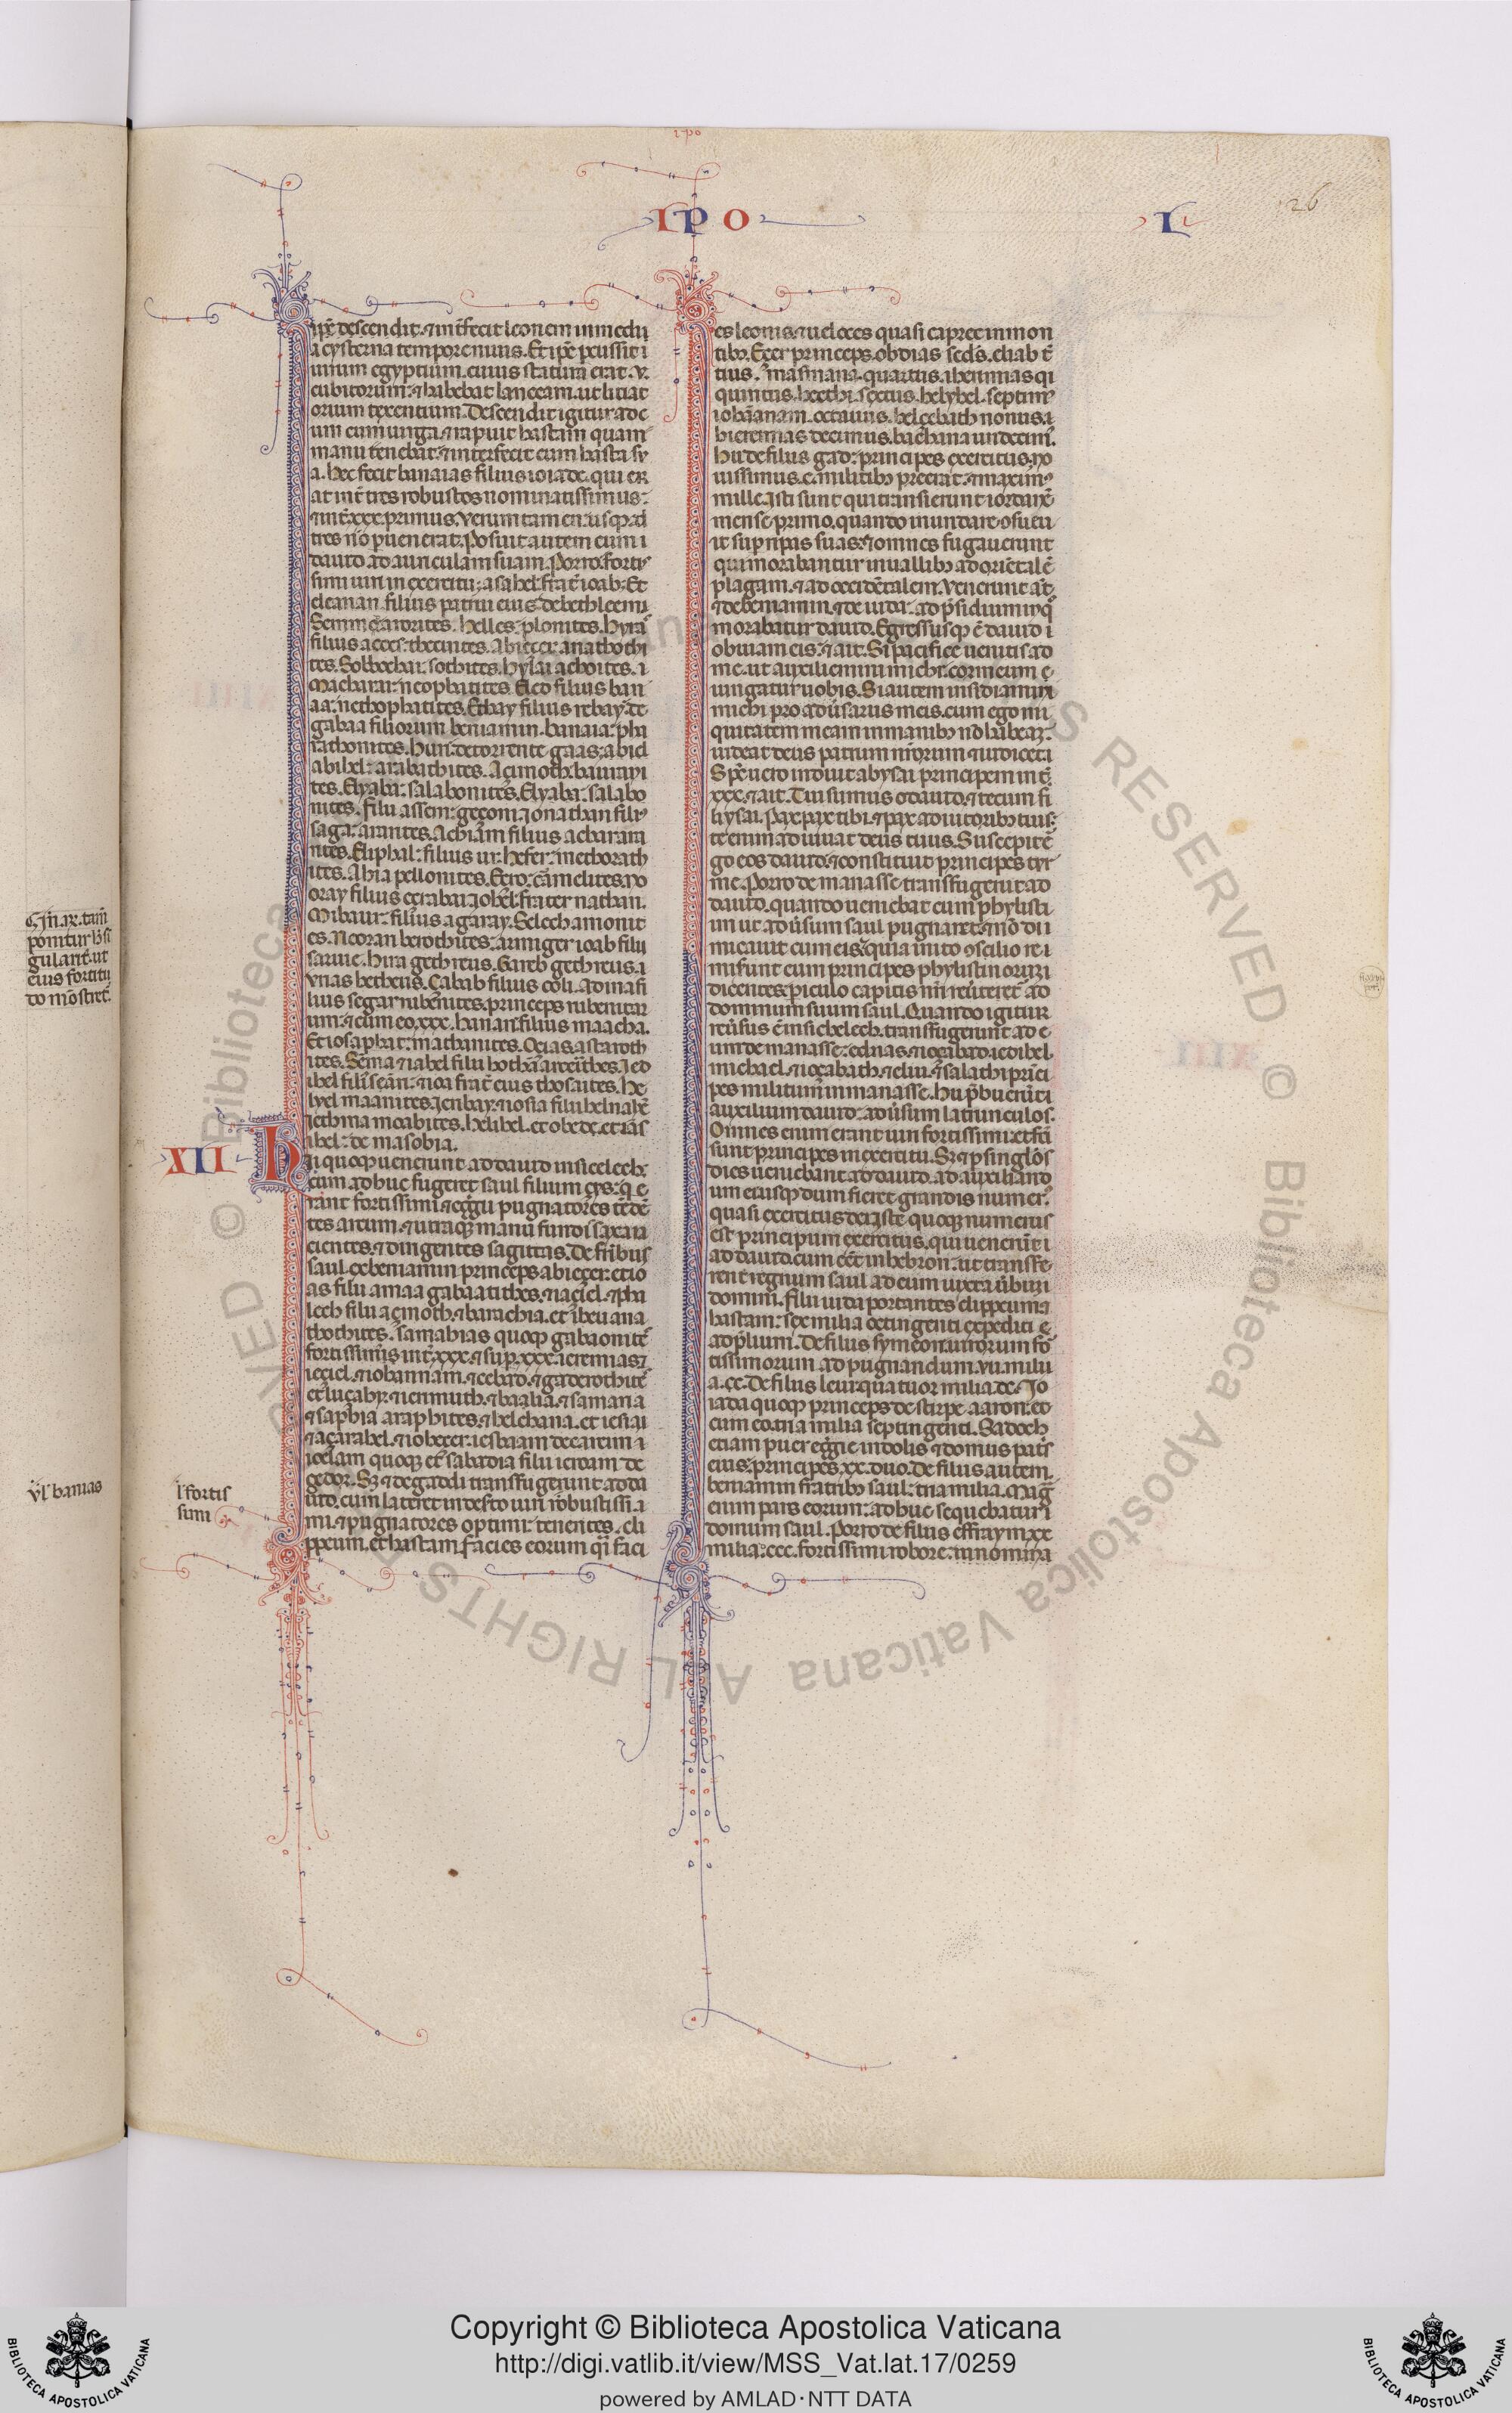 IPO
L
26
ip̄e descendit. ⁊ int̄fecit leonem in medii
a cysterna tempore niuis. Et ip̄e p̄cussit i
uirum egyptium. cuius statura erat. v.
cubitorum: ⁊ habebat lanceam. ut liciat
orium texentium. Descendit igitur ad e
um cum uirga. ⁊ rapuit hastam quam
manu tenebat: ⁊ interfecit eum hasta su
a. Hec fecit banaias filius ioiade. qui er
at int̄ tres robustos nominatissimus:
⁊ int̄ xxx. primus. Verum tamen. usq; ad
tres nō puenerat. Posuit autem eum i
dauid ad auriculam suam. Porro forty
simi uiri in exercitu: asahel. frat̄ ioab: Et
eleanan. filius patrui eius debethleem.
filius acces: thecuites. Abiecer. anathothi
tes. Sobbochai: sothites. Hylai achoites.
Maharai: neophatites. Eled filius ban
aa: nethophatites. Ethay filius rebay. de
gabaa filiorum beniamin. banaia: pha
rathonites. Huri. detorrente gaas. abid
abihel: arabathites. Azmoth: bauramı
tes. Elyaba: salabonites. Elyaba: salabo
nites. Filii assem: gezoni. Jonathan fili'
saga: ararites. Achiam filius achar. ara
rites. Eliphal: filius ur. Hefer: metborath
ites. Ahia pellonites. Ecro: carmelites. No
oray filius ezrabai. Johel: frater nathan.
Mibaur: filius agaray. Selech amonit
es. Nooran berothites: armiger ioab filii
saruie. Hira gethreus. Gareb gethreus.
Vrias hetheus. Zabab filius coli. Adina fi
lius segar rubenites. princeps rubenitar
um. ⁊ cum eo. xxx. hanan. filius maacha.
Et iosaphat: mathanites. Ozias. astaroth
ites. Sema ⁊ iahel filii hothā arerithes. Jed
ibel filius sāri: ⁊ ioa frat̄ eius thosaites. He
lyel maanites. Jeribay: ⁊ iosia filii helnahē
iethma moabites. helihel. et obede. et ias
ihel: de masobia.
XII
Hii quoq; uenerunt ad dauid in sicelech.
cum adhuc fugeret saul filium cys: q̄ e
rant fortissimi. ⁊ egregii pugnatores tēdē
tes arcum. ⁊ utraq; manu fundis saxa ia
cientes. ⁊ dirigentes sagittas. De frībus
saul ex beniamin. princeps abiezer: et io
as filii amaa gabaatithes. ⁊ aziel. ⁊ pha
lech filii azmoth. ⁊ barachia. et iheu ana
thothites. Samahias quoq; gabaonitē
fortissimus int̄ xxx. ⁊ sup xxx. ieremias ⁊
ieziel. ⁊ iohannam. ⁊ iezbad. ⁊ gaderothitē
et luzaby. ⁊ ierimuth. ⁊ baalia. ⁊ samaria
⁊ saphia araphites. ⁊ helchana. et iesiai
⁊ azarahel. ⁊ iohezer. iesbaam de careim.
ioelam quoq; et sabadia filii ieroam. de
gedor. Sz ⁊ de gaddi transfugerunt ad da
uid. cum lateret in deserto uiri robustissi
mi. ⁊ pugnatores optimi: tenentes. cli
ppeum. et hastam. Facies eorum q̄i faci
es leonis. ⁊ ueloces quasi capree in mon
tib;. Ezer princeps. obdias sed̄s. eliab t̄
tius. masmana. quartus. iheremias qi
quintus. hecthi. sextus. helyhel. septim'
iohānam. octauus. helzebath nonus.
hieremias decimus. bachana undecim'.
Hii de filiis gad: principes exercitus. No
uissimus. c. militib; preerat: ⁊ maxim'
mille. Isti sunt qui transierunt iordanē
mense primo. quando inundare cōsueu
it sup ripas suas: ⁊ omnes fugauerunt
qui morabantur in uallib; ad oriētalē
plagam. ⁊ ad occidētalem. Venerunt at̄
⁊ de beniamin. ⁊ de iuda: ad p̄sidium in q̄
morabatur dauid. Egressusq; ē dauid i
obuiam eis: ⁊ ait. Si pacifice uenitis ad
me. ut auxiliemini michi: cor meum
iungatur uobis. Si autem insidiamini
michi pro aduersariis meis. cum ego ini
quitatem meam in manib; nō habeaz:
uideat deus patrum nr̄orum ⁊ iudicet.
Sp̄c uero induit abysai principem int̄
xxx. ⁊ ait. Tui sumus o dauid. ⁊ tecum fi
li ysai. Pax. pax tibi. ⁊ pax adiutorib; tuis:
te enim adiuuat deus tuus. Suscepit ē
go eos dauid. ⁊ constituit principes tur
me. Porro de manasse transfugerūt ad
dauid. quando ueniebat cum phylisti
im ut aduersum saul pugnaret: ⁊ nō di
micauit cum eis. quia inito cōsilio re
miserunt eum principes phylistinorum
dicentes. piculo capitis nr̄i reuertet̄ ad
dominum suum saul. Quando igitur
reuersus ē in sichelech. transfugerunt ad e
um de manasse: ednas. ⁊ iozabad. iedihel.
michael. ⁊ iozabath. ⁊ eliu. ⁊ salathi prīci
pes militum in manasse. Hii p̄buerūt
auxilium dauid: aduersum latrunculos.
Omnes enim erant uiri fortissimi: et fcī
sunt principes in exercitu. Sz ⁊ p singlōs
dies ueniebant ad dauid. ad auxiliand
um ei usq; dum fieret grandis numer'
quasi exercitus dei. Iste quoq; numerus
est principum exercitus. qui uenerūt
ad dauid. cum eet̄ in hebron: ut transfer
rent regnum saul ad eum iuxta uerbum
domini. Filii iuda portantes clippeum
hastam: sex milia octingenti expediti
ad p̄lium. De filiis symeon. uirorum for
tissimorum ad pugnandum. vii. milii
a. c. De filiis leui: quatuor milia. dc. Jo
iada quoq; princeps de stirpe aaron: et
cum eo tria milia septingenti. Sadoch
etiam puer egregie indolis ⁊ domus patris
eius: principes. xx. duo. De filiis autem
beniamin fratrib; saul: tria milia. Mag
enim pars eorum: adhuc sequebatur
domum saul. Porro de filiis effraym xx
milia: ccc. fortissimi robore: uiri nomina
l' fortis
simi
ponitur
eius fortitu
vl' banias
Copyright © Biblioteca Apostolica Vaticana
http://digi.vatlib.it/view/MSS_Vat.lat.17/0259
powered by AMLAD·NTT DATA
BIBLIOTECA APOSTOLICA VATICANA
BIBLIOTECA APOSTOLICA VATICANA